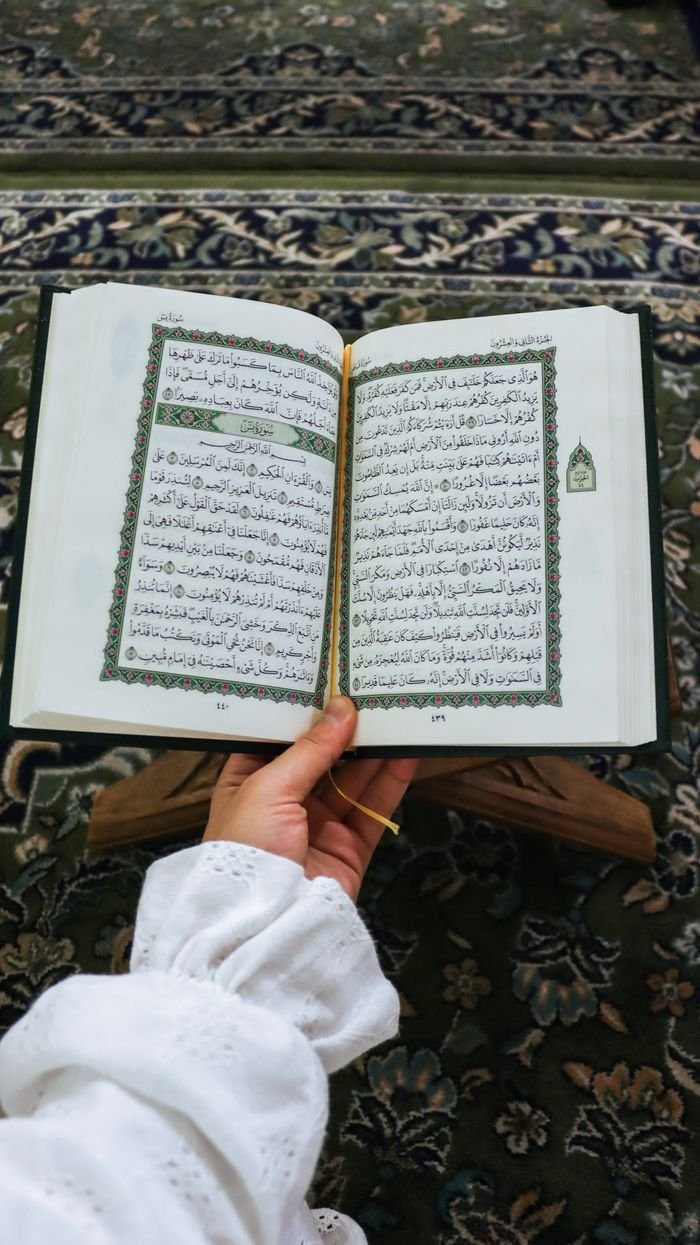 الجُزْءُ الثَّانِي وَالعِشْرُونَ
هُوَ ٱلَّذِى جَعَلَكُمْ خَلَٰٓئِفَ فِى ٱلْأَرْضِ فَمَن كَفَرَ فَعَلَيْهِ كُفْرُهُۥ وَلَا
يَزِيدُ ٱلْكَٰفِرِينَ كُفْرُهُمْ عِندَ رَبِّهِمْ إِلَّا مَقْتًا وَلَا يَزِيدُ ٱلْكَٰفِرِينَ
كُفْرُهُمْ إِلَّا خَسَارًا ٣٩ قُلْ أَرَءَيْتُمْ شُرَكَآءَكُمُ ٱلَّذِينَ تَدْعُونَ مِن
دُونِ ٱللَّهِ أَرُونِى مَاذَا خَلَقُوا۟ مِنَ ٱلْأَرْضِ أَمْ لَهُمْ شِرْكٌ فِى ٱلسَّمَٰوَٰتِ
أَمْ ءَاتَيْنَٰهُمْ كِتَٰبًا فَهُمْ عَلَىٰ بَيِّنَتٍ مِّنْهُ بَلْ إِن يَعِدُ ٱلظَّٰلِمُونَ
بَعْضُهُم بَعْضًا إِلَّا غُرُورًا ٤٠ ۞ إِنَّ ٱللَّهَ يُمْسِكُ ٱلسَّمَٰوَٰتِ
وَٱلْأَرْضَ أَن تَزُولَا وَلَئِن زَالَتَآ إِنْ أَمْسَكَهُمَا مِنْ أَحَدٍ مِّنۢ بَعْدِهِۦٓ
إِنَّهُۥ كَانَ حَلِيمًا غَفُورًا ٤١ وَأَقْسَمُوا۟ بِٱللَّهِ جَهْدَ أَيْمَٰنِهِمْ لَئِن جَآءَهُمْ
نَذِيرٌ لَّيَكُونُنَّ أَهْدَىٰ مِنْ إِحْدَى ٱلْأُمَمِ فَلَمَّا جَآءَهُمْ نَذِيرٌ
مَّا زَادَهُمْ إِلَّا نُفُورًا ٤٢ ٱسْتِكْبَارًا فِى ٱلْأَرْضِ وَمَكْرَ ٱلسَّيِّئِ
وَلَا يَحِيقُ ٱلْمَكْرُ ٱلسَّيِّئُ إِلَّا بِأَهْلِهِۦ فَهَلْ يَنظُرُونَ إِلَّا سُنَّتَ
ٱلْأَوَّلِينَ فَلَن تَجِدَ لِسُنَّتِ ٱللَّهِ تَبْدِيلًا وَلَن تَجِدَ لِسُنَّتِ ٱللَّهِ تَحْوِيلًا ٤٣
أَوَلَمْ يَسِيرُوا۟ فِى ٱلْأَرْضِ فَيَنظُرُوا۟ كَيْفَ كَانَ عَٰقِبَةُ ٱلَّذِينَ مِن
قَبْلِهِمْ وَكَانُوٓا۟ أَشَدَّ مِنْهُمْ قُوَّةً وَمَا كَانَ ٱللَّهُ لِيُعْجِزَهُۥ مِن شَىْءٍ
فِى ٱلسَّمَٰوَٰتِ وَلَا فِى ٱلْأَرْضِ إِنَّهُۥ كَانَ عَلِيمًا قَدِيرًا ٤٤
الحِزْب
٤٤
٤٣٩
سُورَةُ يسٓ
وَلَوْ يُؤَاخِذُ ٱللَّهُ ٱلنَّاسَ بِمَا كَسَبُوا۟ مَا تَرَكَ عَلَىٰ ظَهْرِهَا
مِن دَآبَّةٍ وَلَٰكِن يُؤَخِّرُهُمْ إِلَىٰٓ أَجَلٍ مُّسَمًّى فَإِذَا
جَآءَ أَجَلُهُمْ فَإِنَّ ٱللَّهَ كَانَ بِعِبَادِهِۦ بَصِيرًۢا ٤٥
سُورَةُ يسٓ
بِسْمِ ٱللَّهِ ٱلرَّحْمَٰنِ ٱلرَّحِيمِ
يسٓ ١ وَٱلْقُرْءَانِ ٱلْحَكِيمِ ٢ إِنَّكَ لَمِنَ ٱلْمُرْسَلِينَ ٣ عَلَىٰ
صِرَٰطٍ مُّسْتَقِيمٍ ٤ تَنزِيلَ ٱلْعَزِيزِ ٱلرَّحِيمِ ٥ لِتُنذِرَ قَوْمًا
مَّآ أُنذِرَ ءَابَآؤُهُمْ فَهُمْ غَٰفِلُونَ ٦ لَقَدْ حَقَّ ٱلْقَوْلُ عَلَىٰٓ أَكْثَرِهِمْ
فَهُمْ لَا يُؤْمِنُونَ ٧ إِنَّا جَعَلْنَا فِىٓ أَعْنَٰقِهِمْ أَغْلَٰلًا فَهِىَ إِلَى
ٱلْأَذْقَانِ فَهُم مُّقْمَحُونَ ٨ وَجَعَلْنَا مِنۢ بَيْنِ أَيْدِيهِمْ سَدًّا
وَمِنْ خَلْفِهِمْ سَدًّا فَأَغْشَيْنَٰهُمْ فَهُمْ لَا يُبْصِرُونَ ٩ وَسَوَآءٌ
عَلَيْهِمْ ءَأَنذَرْتَهُمْ أَمْ لَمْ تُنذِرْهُمْ لَا يُؤْمِنُونَ ١٠ إِنَّمَا تُنذِرُ
مَنِ ٱتَّبَعَ ٱلذِّكْرَ وَخَشِىَ ٱلرَّحْمَٰنَ بِٱلْغَيْبِ فَبَشِّرْهُ بِمَغْفِرَةٍ
وَأَجْرٍ كَرِيمٍ ١١ إِنَّا نَحْنُ نُحْىِ ٱلْمَوْتَىٰ وَنَكْتُبُ مَا قَدَّمُوا۟
وَءَاثَٰرَهُمْ وَكُلَّ شَىْءٍ أَحْصَيْنَٰهُ فِىٓ إِمَامٍ مُّبِينٍ ١٢
٤٤٠